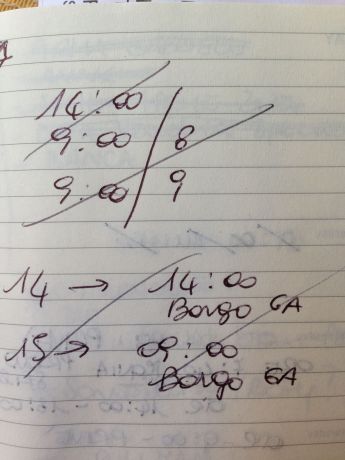 14:00
9:00 8
9:00 9
14 → 14:00
Borgo GA
15 → 09:00
Borgo GA